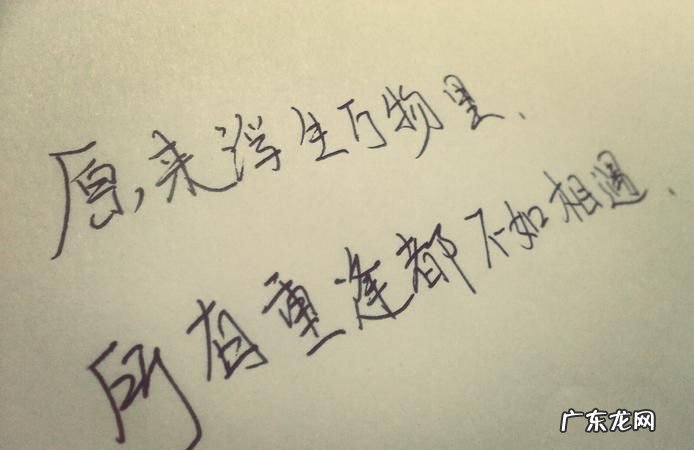 原来浮生万物里、
所有重逢都不如相遇.
广东龙网